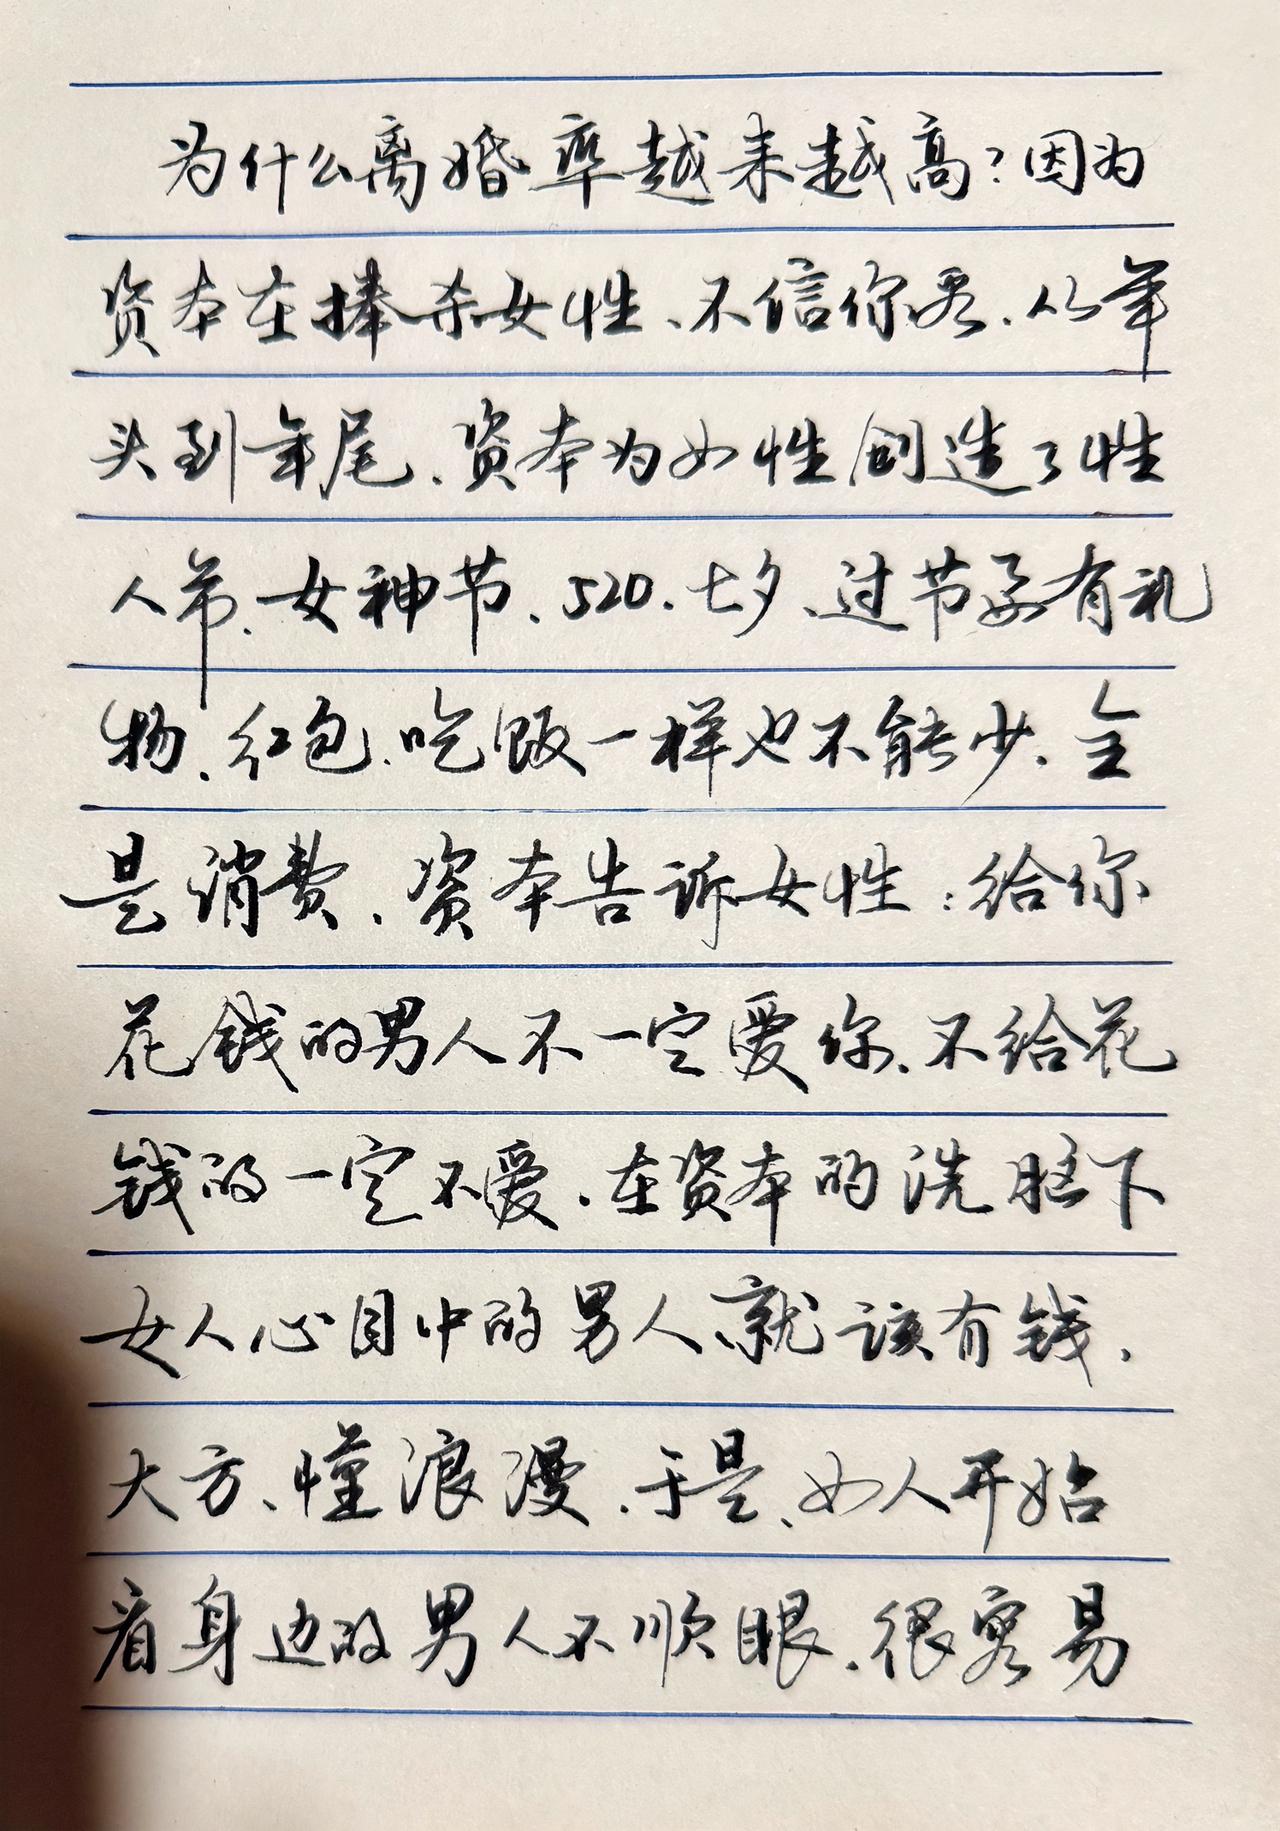 为什么离婚率越来越高?因为
资本在捧杀女性、不信你看、从年
头到年尾、资本为女性创造了性
人节、女神节、520、七夕、过节要有礼
物、红包、吃饭一样也不能少、全
是消费、资本告诉女性:给你
花钱的男人不一定爱你、不给花
钱的一定不爱、在资本的洗脑下
女人心目中的男人、就该有钱、
大方、懂浪漫、于是、女人开始
看身边的男人不顺眼、很容易